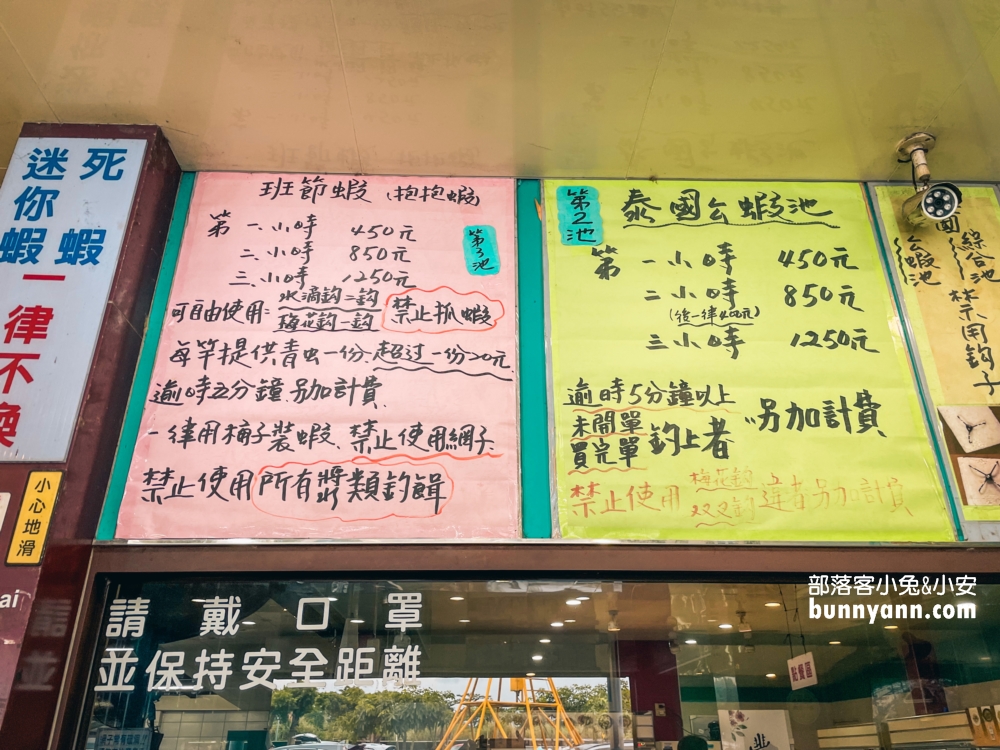 死蝦
迷你蝦
一律不換
小心地滑
班節蝦(抱抱蝦)
第3池
第一小時 450元
二小時 850元
三小時 1250元
可自由使用:水滴鈎二鈎
梅花鈎一鈎
禁止抓蝦
每竿提供青虫一份.超过一份20元
逾時五分鐘另加計費
一律用桶子裝蝦、禁止使用網子
禁止使用所有漿類釣餌
第2池
泰國公蝦池
第一小時 450元
二小時 850元
(後一律400元)
三小時 1250元
逾時5分鐘以上
未開單
買完單
釣上者
另加計費
禁止使用
梅花鈎
双叉鈎
違者另加計費
綜合池
公蝦池
禁用鈎子
請戴口罩
並保持安全距離
點餐區
部落客小兔&小安
bunnyann.com
ai